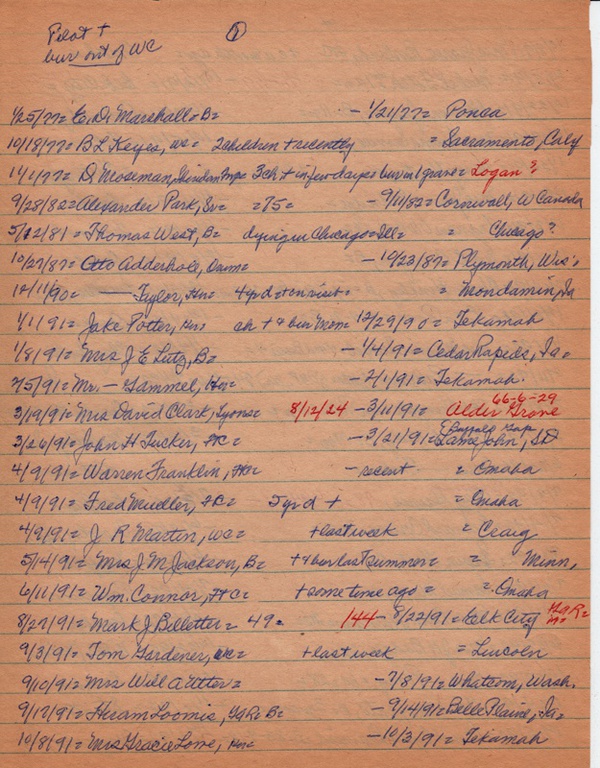 Pilot +
bur out of WC
①
1/25/77= E. D. Marshall= B= - 1/21/77= Ponca
10/18/77= B L Keyes, wc= 2 children + recently = Sacramento, Caly
11/1/77= D. Moseman, 3 ch + in few days bur in 1 grave= Logan?
9/28/82= Alexander Park, Sr= =75= - 9/11/82= Cornwall, W Canada
5/12/81= Thomas West, B= dying in Chicago= Ill= = Chicago?
10/27/87= Otto Adderhole, - 10/23/87= Plymouth, Wis's
12/11/90= — Taylor, Her= 4 yr d + on visit= = Mondamin, Ia
1/1/91= Jake Potter, Her= ch + & bur Mon= 12/29/90= Tekamah
1/8/91= Mrs J E Lutz, B= - 1/4/91= Cedar Rapids, Ia=
2/5/91= Mr. — Gammel, Her= - 2/1/91= Tekamah.
3/19/91= Mrs David Clark, Lyons= 8/12/24 - 3/11/91= Alder Grove 66-6-29
3/26/91= John H Tucker, HC= - 3/21/91= Lame John, SD (Buffalo Gap
4/9/91= Warren Franklin, HC= - recent = Omaha
4/9/91= Fred Mueller, HC= 5 yr d + = Omaha
4/9/91= J. R Martin, wc= + last week = Craig
5/14/91= Mrs J M Jackson, B= + & bur last summer= = Minn,
6/11/91= Wm. Connor, HC= + some time ago= = Omaha
8/27/91= Mark J Belletter= 49= 144 - 8/22/91= Elk City
9/3/91= Tom Gardener, wc= + last week = Lincoln
9/10/91= Mrs Will A Utter= - 7/8/91= Whatcom, Wash.
9/17/91= Hiram Loomis, GAR= B= - 9/14/91= Belle Plaine, Ia=
10/8/91= Mrs Gracie Lowe, Her= - 10/3/91= Tekamah